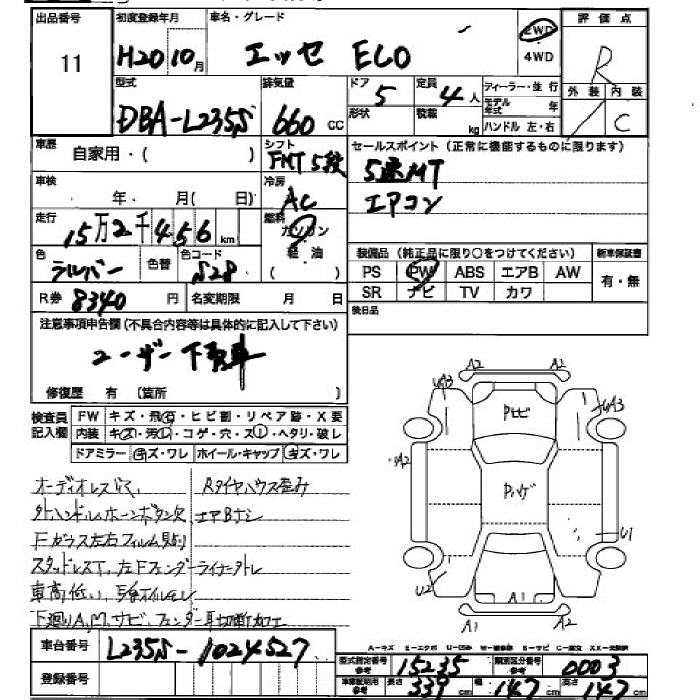 出品番号 初度登録年月 車名・グレード 評価点
11 H20 10月 エッセ ECO 2WD 4WD R
型式 排気量 ドア 定員 ディーラー・並行 外装 内装
DBA-L235S 660 CC 5 4人 形状 積載 kg モデル年式 年 ハンドル 左・右 C
車歴 自家用・( ) シフト FMT 5段 セールスポイント(正常に機能するものに限ります)
5速MT
車検 年 月( 日) 冷房 AC エアコン
走行 15万2千456km 燃料 ガソリン 軽油 ( )
装備品(純正品に限り○をつけてください) 新車保証書
色 シルバー 色替 色コード S28 PS PW ABS エアB AW 有・無
R券 8340円 名変期限 月 日 SR ナビ TV カワ
注意事項申告欄(不具合内容等は具体的に記入して下さい) 後日品
ユーザー下取車
修復歴 有 〔箇所 〕
検査員記入欄 FW キズ・飛石・ヒビ割・リペア跡・X要
内装 キズ・汚レ・コゲ・穴・スレ・ヘタリ・破レ
ドアミラー キズ・ワレ ホイール・キャップ キズ・ワレ
A2 A2
UA3 Pサビ UA3
A2 Pハゲ
U1
U2 A1
A1 A1
オーディオレス
Rタイヤハウス歪み
外ハンドルホーンボタン欠 エアBナシ
Fガラス左右フィルム貼り
スタッドレスT、左Fフェンダーライナートレ
車高低い
下廻りA,M,サビ、フェンダー耳切断加工
車台番号 L235S-1024527
A-キズ E-エクボ U-凹み W-補修跡 B-サビ C-腐蝕 XX-交換済
登録番号 型式指定番号 参考 15235 類別区分番号 参考 0003
車庫証明用 参考 長さ 339 cm 幅 147 cm 高さ 147 cm